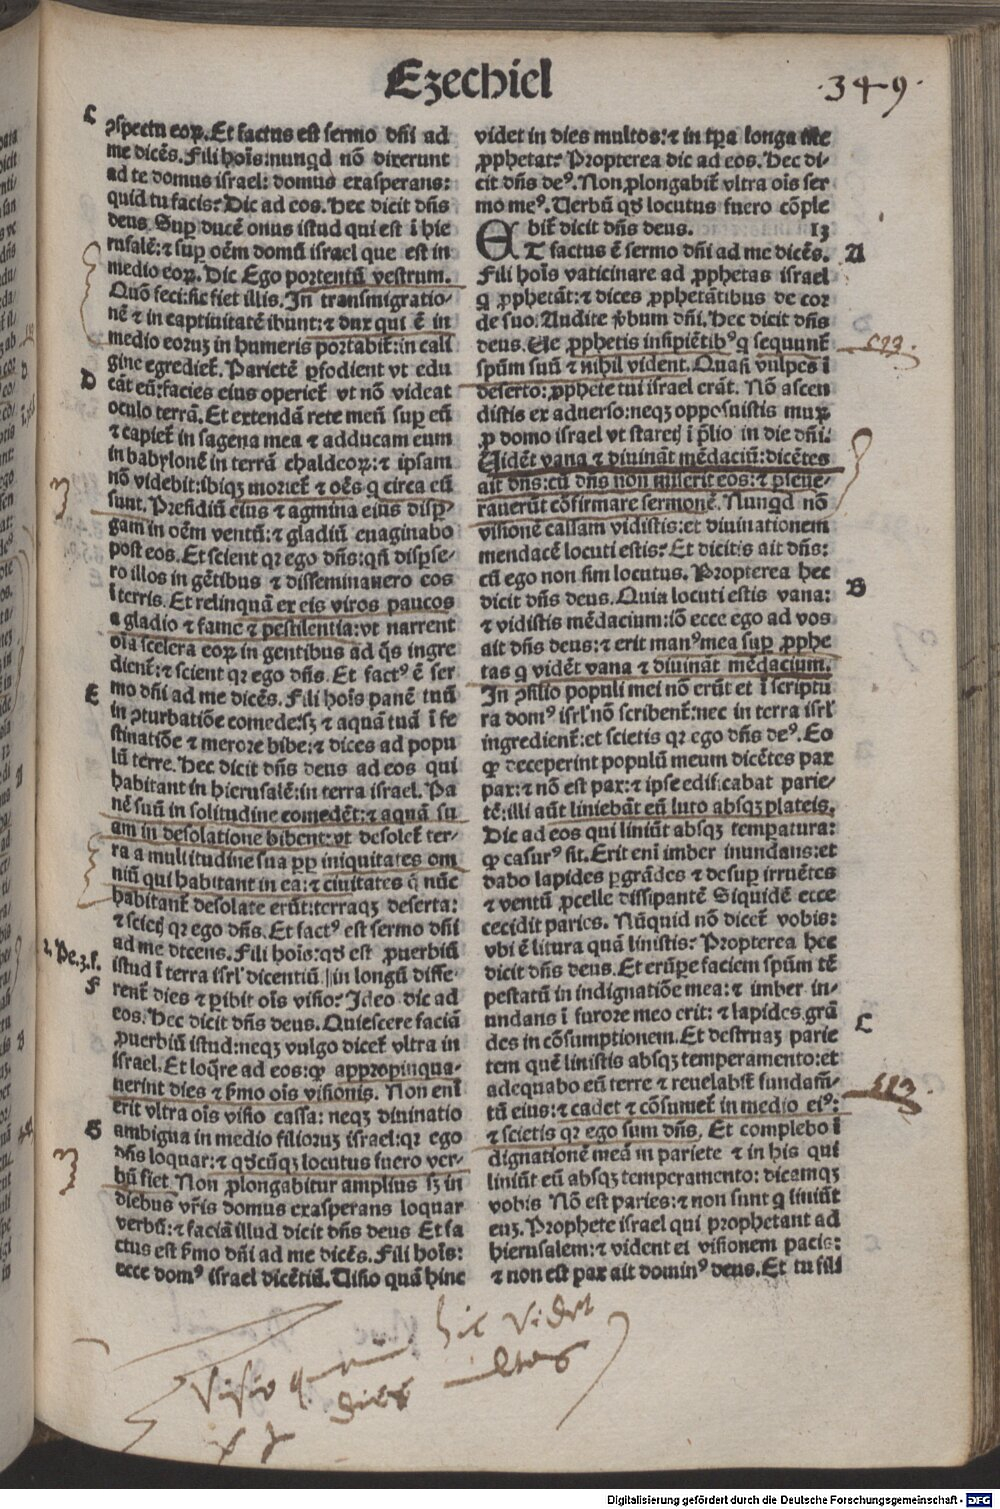 Ezechiel
349
C
ꝯspectu eoꝝ. Et factus est sermo dñi ad
me dicẽs. Fili hoĩs: nunqd nõ dixerunt
ad te domus israel: domus exasperans:
quid tu facis? Dic ad eos. Hec dicit dñs
deus. Sup ducẽ onus istud qui est ĩ hie
rusalẽ: ⁊ sup oẽm domũ israel que est in
medio eoꝝ. Dic Ego portentũ vestrum.
Quõ feci: sic fiet illis. In transmigratio⸗
nẽ ⁊ in captiuitatẽ ibunt: ⁊ dux qui ẽ in
medio eoruꝫ in humeris portabit᷑: in cali
gine egrediet᷑. Parietẽ ꝑfodient vt edu
D
cãt eũ: facies eius operiet᷑ vt nõ videat
oculo terrã. Et extendã rete meũ sup eũ
⁊ capiet᷑ in sagena mea ⁊ adducam eum
in babylonẽ in terrã chaldeoꝝ: ⁊ ipsam
nõ videbit: ibiqꝫ moriet᷑ ⁊ oẽs q circa eũ
sunt. Presidiũ eius ⁊ agmina eius disꝑ⸗
gam in oẽm ventũ: ⁊ gladiũ euaginabo
post eos. Et scient qꝛ ego dñs: qñ disꝑse⸗
ro illos in gẽtibus ⁊ disseminauero eos
ĩ terris. Et relinquã ex eis viros paucos
a gladio ⁊ fame ⁊ pestilentia: vt narrent
oĩa scelera eoꝝ in gentibus ad q̃s ingre
dient᷑: ⁊ scient qꝛ ego dñs. Et factꝰ ẽ ser
E
mo dñi ad me dicẽs. Fili hoĩs panẽ tuũ
in ꝯturbatiõe comede: sꝫ ⁊ aquã tuã ĩ fe
stinatiõe ⁊ merore bibe: ⁊ dices ad popu
lũ terre. Hec dicit dñs deus ad eos qui
habitant in hierusalẽ: in terra israel. Pa
nẽ suũ in solitudine comedẽt: ⁊ aquã su
am in desolatione bibent: vt desolet᷑ ter⸗
ra a multitudine sua ꝓp iniquitates om
niũ qui habitant in ea: ⁊ ciuitates q̃ nũc
habitant᷑ desolate erũt: terraqꝫ deserta:
⁊ scietꝭ qꝛ ego dñs. Et factꝰ est sermo dñi
ad me dicens. Fili hoĩs: qd est ꝓuerbiũ
2. Pe. 3. f.
istud ĩ terra isrl' dicentiũ in longũ diffe⸗
F
rent᷑ dies ⁊ ꝑibit oĩs visio? Ideo dic ad
eos. Hec dicit dñs deus. Quiescere faciã
ꝓuerbiũ istud: neqꝫ vulgo dicet᷑ vltra in
israel. Et loq̃re ad eos: ꝙ appropinqua⸗
uerint dies ⁊ ẜmo oĩs visionis. Non eni
erit vltra oĩs visio cassa: neqꝫ diuinatio
G
ambigua in medio filioruꝫ israel: qꝛ ego
dñs loquar: ⁊ qdcũqꝫ locutus fuero ver⸗
bũ fiet. Non ꝓlongabitur amplius sꝫ in
diebus vr̃is domus exasperans loquar
verbũ: ⁊ faciã illud dicit dñs deus Et fa
ctus est ẜmo dñi ad me dicẽs. Fili hoĩs:
ecce domꝰ israel dicẽtiũ. Uisio quã hinc
videt in dies multos: ⁊ in tꝑa longa iste
ꝓphetat? Propterea dic ad eos. Hec di⸗
cit dñs deꝰ. Non ꝓlongabit᷑ vltra oĩs ser
mo meꝰ. Uerbũ qd locutus fuero cõple
bit᷑ dicit dñs deus. 13
ET factus ẽ sermo dñi ad me dicẽs. A
Fili hoĩs vaticinare ad ꝓphetas israel
q ꝓphetãt: ⁊ dices ꝓphetãtibus de cor
de suo. Audite v̾bum dñi. Hec dicit dñs
deus. Ue ꝓphetis insipiẽtibꝰ q sequunt᷑
spũm suũ ⁊ nihil vident. Quasi vulpes ĩ
deserto: ꝓphete tui israel erãt. Nõ ascen
distis ex aduerso: neqꝫ opposuistis muꝝ
ꝓ domo israel vt staretꝭ ĩ p̃lio in die dñi.
Uidẽt vana ⁊ diuinãt mẽdaciũ: dicẽtes
ait dñs: cũ dñs non miserit eos: ⁊ pseue⸗
rauerũt cõfirmare sermonẽ. Nunqd nõ
visionẽ cassam vidistis: et diuinationem
mendacẽ locuti estis? Et dicitis ait dñs:
cũ ego non sim locutus. Propterea hec
B
dicit dñs deus. Quia locuti estis vana:
⁊ vidistis mẽdacium: iõ ecce ego ad vos
ait dñs deus: ⁊ erit manꝰ mea sup ꝓphe
tas q vidẽt vana ⁊ diuinãt mẽdacium.
In ꝯsilio populi mei nõ erũt et ĩ scriptu
ra domꝰ isrl' nõ scribent᷑: nec in terra isrl'
ingredient᷑: et scietis qꝛ ego dñs deꝰ. Eo
ꝙ deceperint populũ meum dicẽtes pax
pax: ⁊ nõ est pax: ⁊ ipse edificabat parie⸗
tẽ: illi aũt liniebãt eũ luto absqꝫ plateis.
Dic ad eos qui liniũt absqꝫ temꝑatura:
ꝙ casurꝰ sit. Erit eni imber inundans: et
dabo lapides ꝑgrãdes ⁊ desup irruẽtes
⁊ ventũ ꝓcelle dissipantẽ Siquidẽ ecce
cecidit paries. Nũquid nõ dicet᷑ vobis:
vbi ẽ litura quã linistis? Propterea hec
dicit dñs deus. Et erũpe faciem spũm tẽ
pestatũ in indignatiõe mea: ⁊ imber in⸗
undans ĩ furore meo erit: ⁊ lapides grã
C
des in cõsumptionem. Et destruaꝫ parie
tem quẽ linistis absqꝫ temperamento: et
adequabo eũ terre ⁊ reuelabit᷑ fundamẽ⸗
tũ eius: ⁊ cadet ⁊ cõsumet᷑ in medio eiꝰ:
⁊ scietis qꝛ ego sum dñs. Et complebo ĩ
dignationẽ meã in pariete ⁊ in his qui
liniũt eũ absqꝫ temperamento: dicamqꝫ
vobis Nõ est paries: ⁊ non sunt q liniũt
euꝫ. Prophete israel qui prophetant ad
hierusalem: ⁊ vident ei visionem pacis:
⁊ non est pax ait dominꝰ deus. Et tu fili
hic videt
Visio quam
dies multos
Digitalisierung gefördert durch die Deutsche Forschungsgemeinschaft - DFG